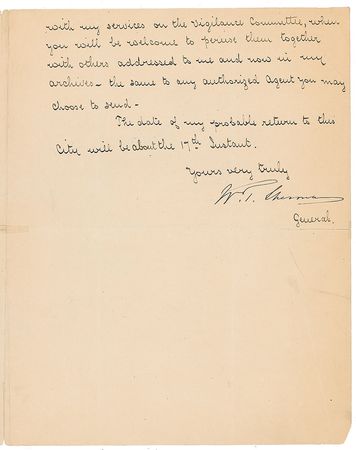 with my services on the Vigilance Committee, when
you will be welcome to peruse them together
with others addressed to me and now in my
archives - the same to any authorized Agent you may
choose to send -
The date of my probable return to this
City will be about the 17th Instant.
Yours very truly
W. T. Sherman
General.